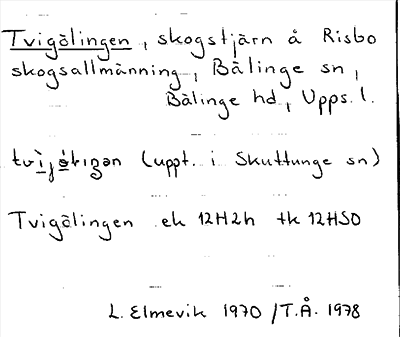 Tvigölingen, skogstjärn å Risbo
skogsallmänning, Bälinge sn,
Bälinge hd, Upps. l.
(uppt. i Skuttunge sn)
Tvigölingen ek 12H2h tk 12HSO
L. Elmevik 1970 /T.Å. 1978